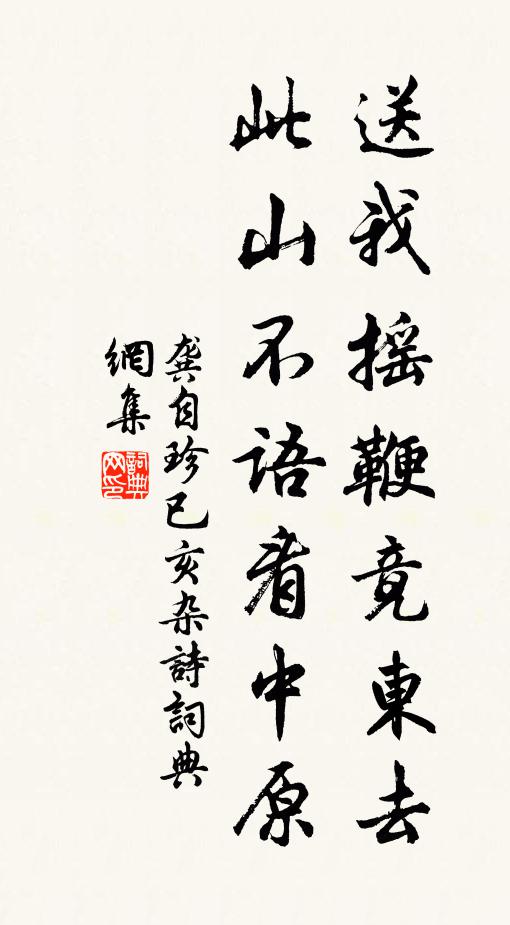 送我摇鞭竟東去
此山不语看中原
龚自珍己亥杂詩詞典
網集
詞典网印